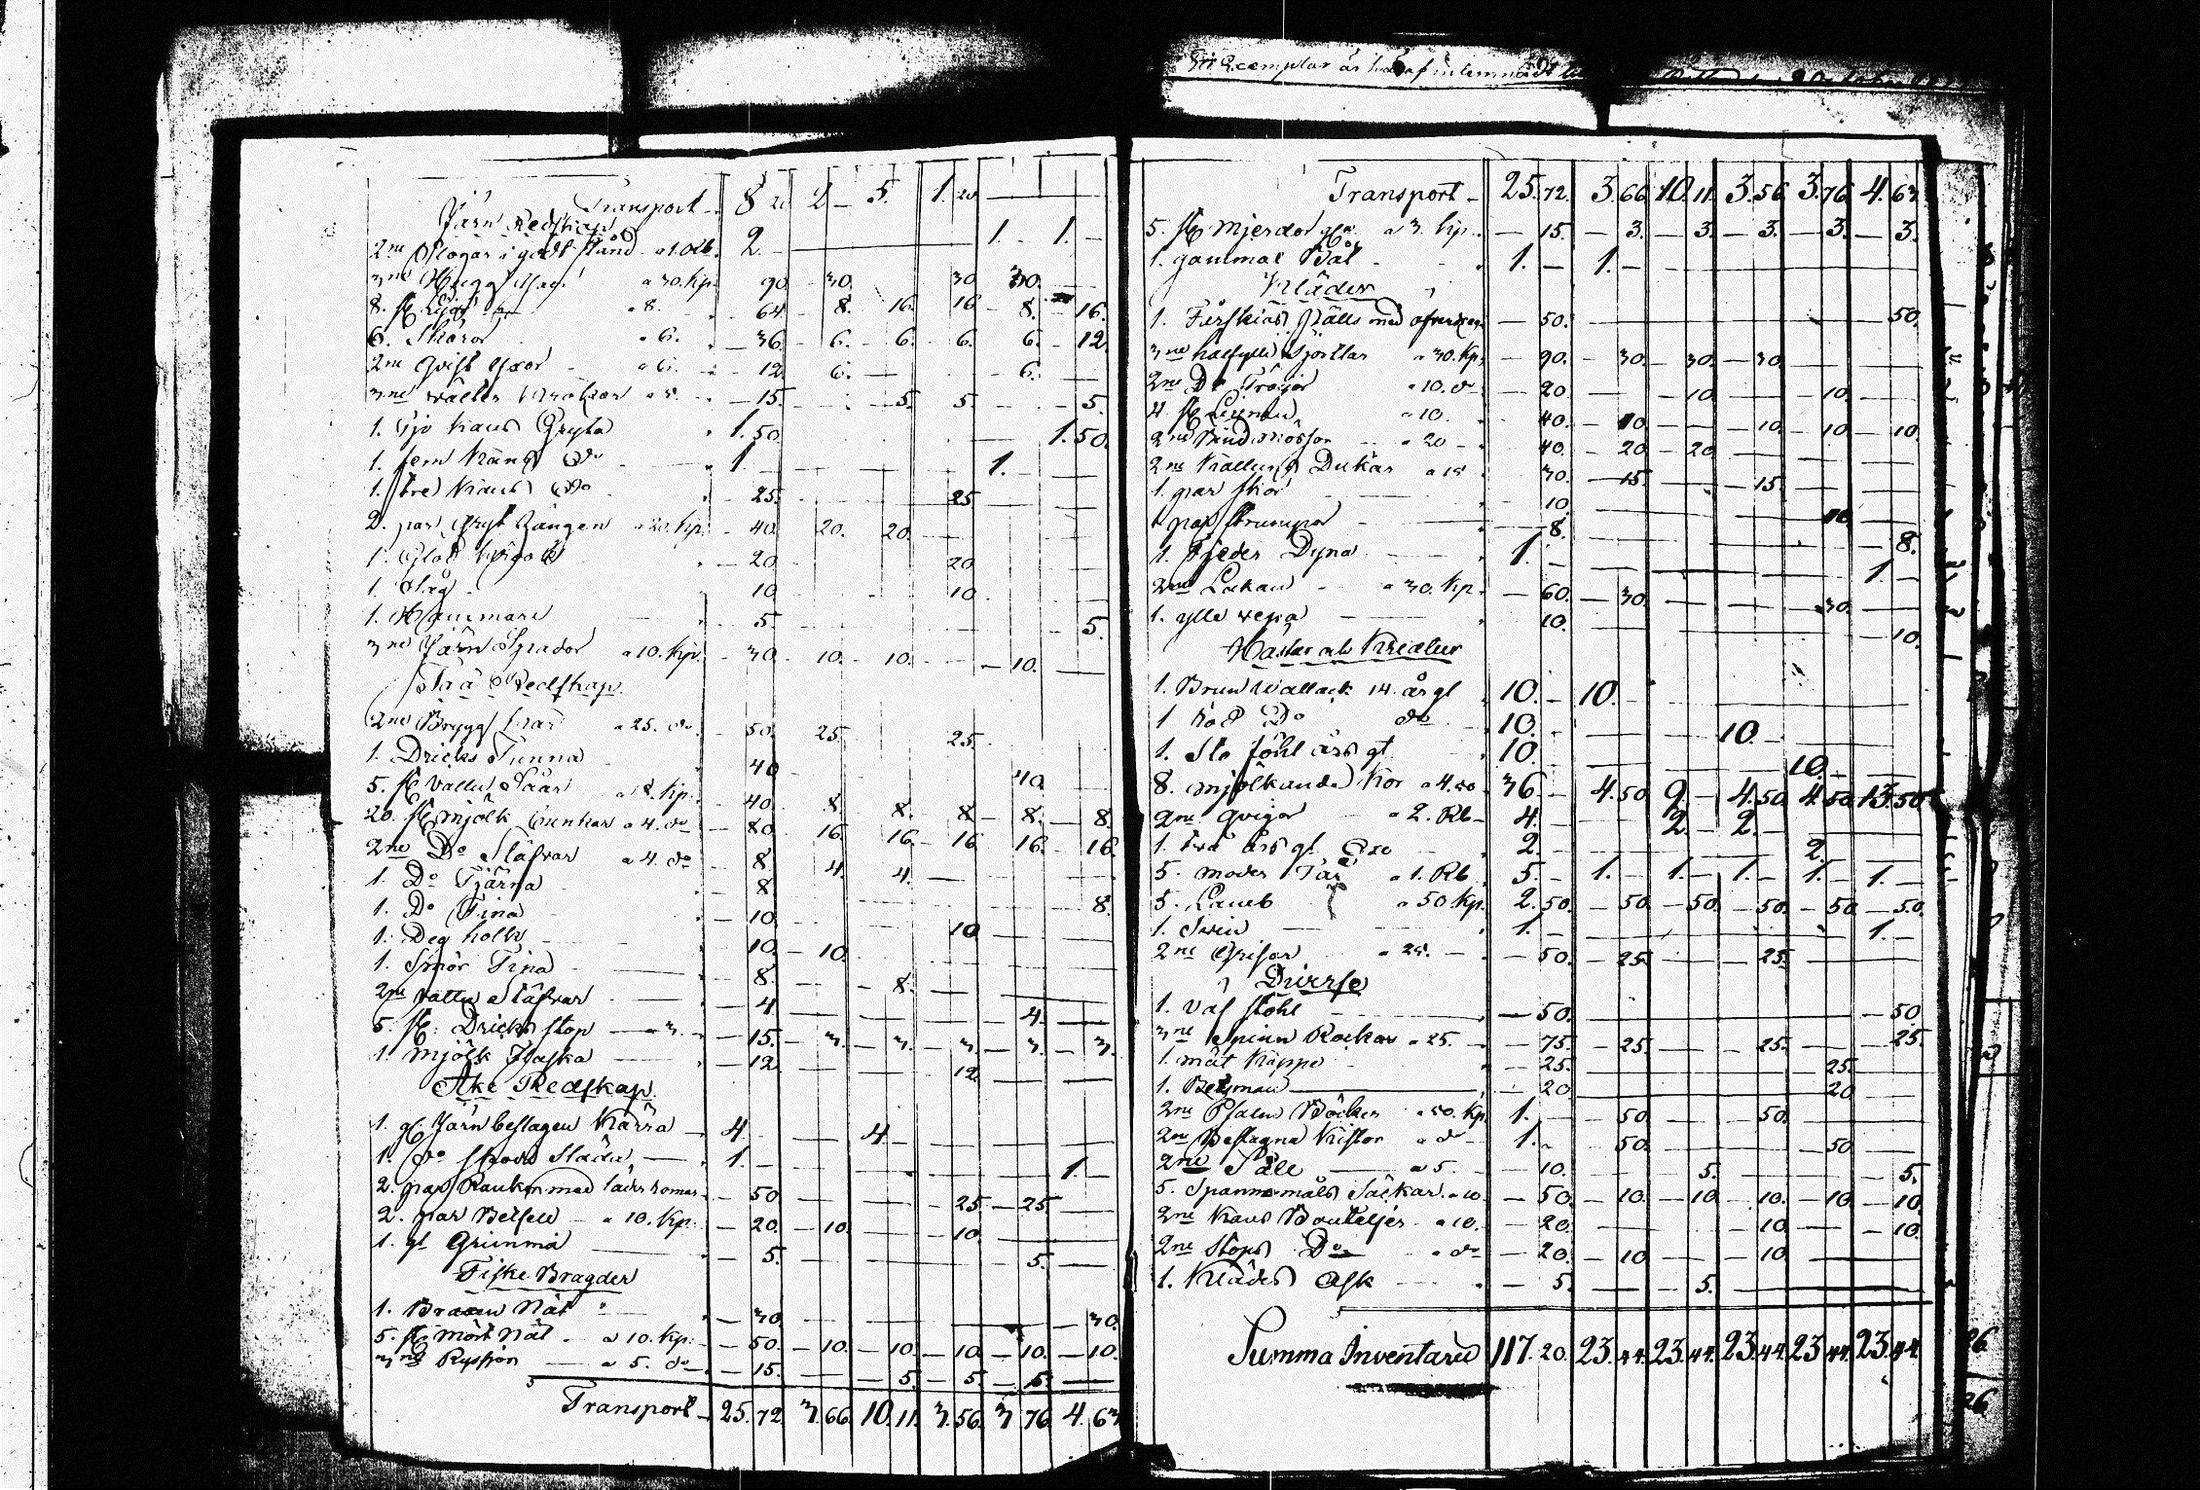 Ett Exemplar är häraf inlemnadt
Transport 8 20 2 — 5. 1. 20
Järn Redskap
2ne Plogar i godt stånd a 1. Rb. 2. — 1. 1. —
3ne Hugg Yxor a 30. Kp. 90. 30. 30 30.
8. st. a 8. 64. 8. 16. 16 8. 16.
6. Skäror a 6. 36. 6. 6. 6. 6. 12.
2ne Qvist Yxor a 6. 12. 6. 6.
3ne a 5. 15. 5. 5. 5.
1. Sju Kans Gryta 1. 50. 1. 50.
1. fem Kans Do 1. 1.
1. tre Kans Do 25. 25
2. par Gryt Tängen a 20. Kp. 40. 20. 20.
1. Glöd 20 20
1. Såg 10 10.
1. Hammare 5. 5.
3ne Järn Spador a 10. Kp. 30. 10. 10. 10.
Trä Redskap.
2ne Brygg kar a 25. do 50. 25. 25.
1. Dricks Tunna 40 40
5. st. Vattu Såar a 8. Kp. 40. 8. 8. 8. 8. 8.
20. st. mjölk Bunkar a 4. do 80. 16. 16. 16. 16. 16.
2ne Do Stäfvar a 4. do 8. 4. 4.
1. Do Tjärna 8. 8.
1. Do Tina 10. 10
1. Deg holk 10. 10.
1. Smör Tina 8. 8.
2ne Vattu Stäfvar 4 4.
5. st. Dricks stop a 3. 15. 3. 3. 3. 3. 3.
1. mjölk Flaska 12. 12.
Åke Redskap.
1. gl. Järnbeslagen Kärra 4. 4.
1. do skodd Släda 1. 1.
2. par Rankor med läder romar 50. 25 25
2. par Betsell a 10. Kp. 20. 10. 10.
1. gl. Grimma 5. 5.
Fiske Bragder
1. Braxen Nät 30 30.
5. st. mört Nät a 10. Kp. 50. 10. 10. 10. 10. 10.
3ne Ryssjor a 5. do 15. 5. 5. 5.
Transport 25. 72. 3. 66. 10. 11. 3. 56. 3. 76. 4. 63
Transport 25. 72. 3. 66. 10. 11. 3. 56. 3. 76. 4. 63.
5. st. Mjerdor gla a 3. Kp. 15. 3. 3. 3. 3. 3.
1. gammal Båt 1. — 1. —
Kläder
1. Fårskins fälls med 50. 50.
3ne halfylle Kjortlar a 30. Kp. 90. 30. 30. 30.
2ne Do Tröjor a 10. do 20 10. 10.
4. st. Linnen a 10. 40. 10. 10. 10. 10.
2ne Bind mössor a 20 40. 20. 20.
2ne Kattuns Dukar a 15 30. 15. 15.
1. par Skor 10. 10
1. par Strumpor 8. 8.
1. Fjeder Dyna 1. — 1. —
2ne Lakan a 30. Kp. 60. 30. 30.
1. ylle 10. 10.
Hästar och Kreatur
1. Brun Wallack 14. år gl 10. — 10. —
1 Do do 10. 10. —
1. Sto föhl års gt 10. 10. —
8. mjölkande Kor a 4.50 36. — 4. 50. 9. — 4. 50. 4. 50 13. 50
2ne Qvigor a 2. Rb. 4. — 2. — 2. —
1. två års gl. Oxe 2. — 2.
5. moder Får a 1. Rb. 5. — 1. — 1. — 1. — 1. — 1. —
5. Lamb a 50. Kp. 2. 50. 50. 50. 50. 50 50.
1. Svin 1. — 1. —
2ne Grisar a 25. 50. 25. 25.
Diverse
1. Väf stohl 50. 50.
3ne Spinn Rockar a 25. 75. 25. 25. 25.
1. mät Kappe 25. 25.
1. Betsman 20. 20
2ne Psalm Böcker a 50. Kp. 1. — 50. 50.
2ne Beslagna Kistor a do 1. 50. 50.
2ne Såll a 5. 10. 5. 5.
5. Spannmåls Säckar a 10 50. 10. 10. 10. 10. 10.
2ne Kans Bouteljer a 10. 20. 10. 10.
2ne Stops Do a do 20. 10. 10.
1. Kläde Ask 5. 5.
Summa Inventarii 117. 20. 23. 44. 23. 44. 23. 44. 23 44. 23. 44.
26.
26.